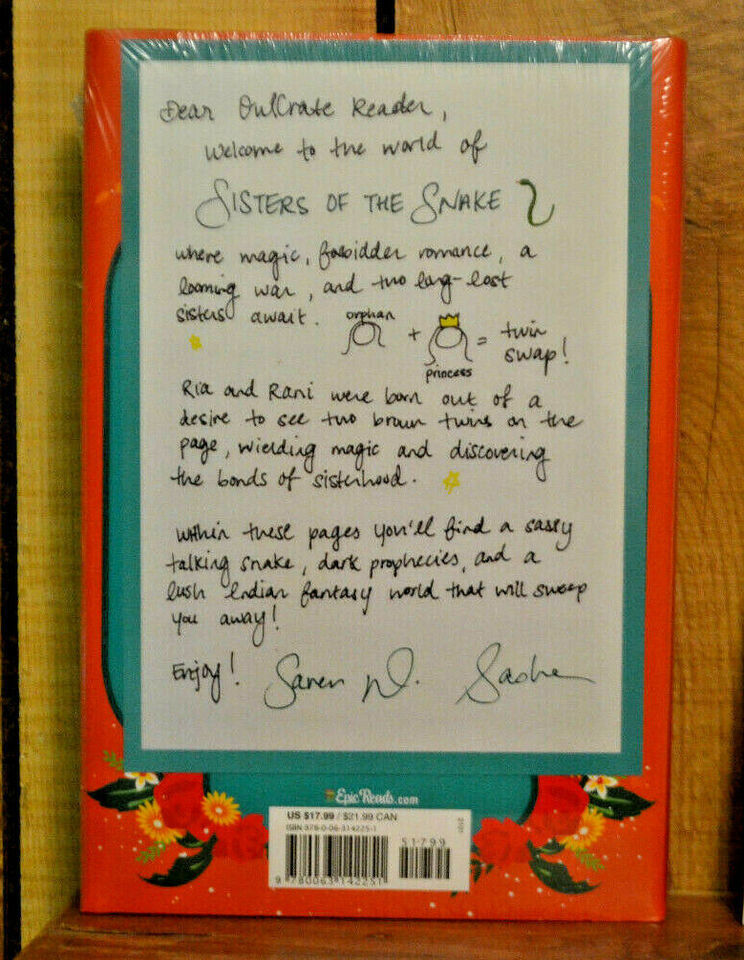 Dear OwlCrate Reader,
Welcome to the world of
SISTERS OF THE SNAKE
where magic, forbidden romance, a
looming war, and two long-lost
sisters await.
orphan
+
princess
= twin
swap!
Ria and Rani were born out of a
desire to see two brown twins on the
page, wielding magic and discovering
the bonds of sisterhood.
Within these pages you'll find a sassy
talking snake, dark prophecies, and a
lush Indian fantasy world that will sweep
you away!
Enjoy! Saren N. Sasha
EpicReads.com
US $17.99 / $21.99 CAN
ISBN 978-0-06-314225-1
51799
9 780063 142251